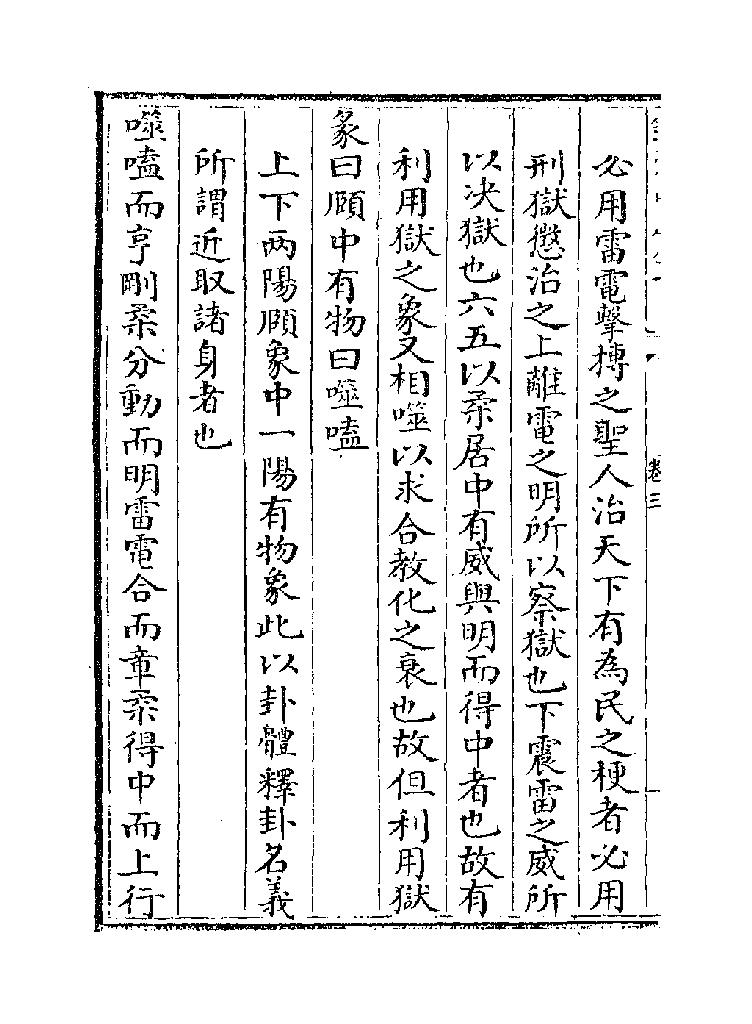 卷三
必用雷電擊搏之聖人治天下有為民之梗者必用
刑獄懲治之上離電之明所以察獄也下震雷之威所
以决獄也六五以柔居中有威與明而得中者也故有
利用獄之象又相噬以求合教化之衰也故但利用獄
彖曰頤中有物曰噬嗑
上下兩陽頤象中一陽有物象此以卦體釋卦名義
所謂近取諸身者也
噬嗑而亨剛柔分動而明雷電合而章柔得中而上行